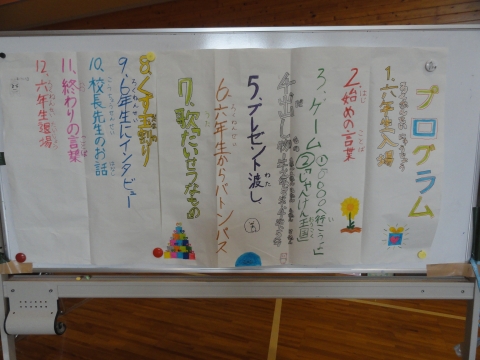 プログラム
1.六年生入場
2.始めの言葉
3.ゲーム ①「○○○○へ行こう」
②「じゃんけん王国」
4.出し物
5.プレゼント渡し
6.六年生からバトンパス
7.歌「たいせつなもの
8.くす玉割り
9.6年生にインタビュー
10.校長先生のお話
11.終わりの言葉
12.六年生退場